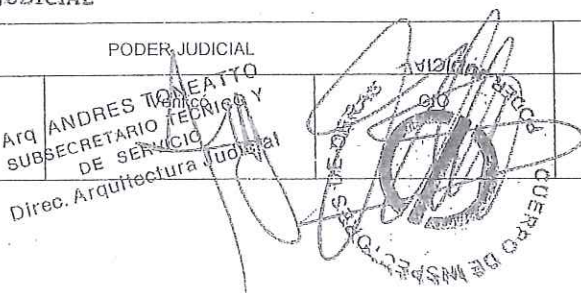 JUDICIAL
PODER JUDICIAL
Verificó
Arq ANDRES TONEATTO
SUBSECRETARIO TECNICO Y
DE SERVICIO
Direc. Arquitectura Judicial
PODER JUDICIAL
CUERPO DE INSPECTORES DE OBRAS